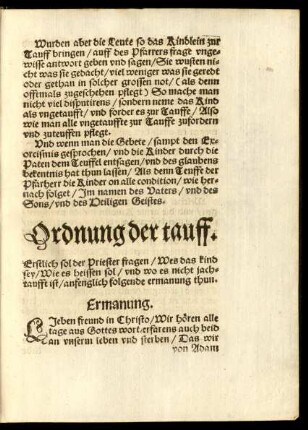 Wurden aber die Leute so das Kindlein zur
Tauff bringen / auff des Pfarrers frage vnge-
wisse antwort geben vnd sagen / Sie wusten ni-
cht was sie gedacht / viel weniger was sie geredt
oder gethan in solcher grossen not / (als denn
offtmals zugeschehen pflegt) So mache man
nicht viel disputirens / sondern neme das Kind
als vngetaufft / vnd forder es zur Tauffe / Also
wie man alle vngetauffte zur Tauffe zufordern
vnd zuteuffen pflegt.
Vnd wenn man die Gebete / sampt den Ex-
orcismis gesprochen / vnd die Kinder durch die
Paten dem Teuffel entsagen / vnd des glaubens
bekentnis hat thun lassen / Als denn Teuffe der
Pfarherr die Kinder on alle condition / wie her-
nach folget / Im namen des Vaters / vnd des
Sons / vnd des Heiligen Geistes.
Ordnung der tauff.
Erstlich sol der Priester fragen / Wes das kind
sey / Wie es heissen sol / vnd wo es nicht jach-
taufft ist / anfenglich folgende ermanung thun.
Ermanung.
LIeben freund in Christo / Wir hören alle
tage aus Gottes wort / erfarens auch beid
an vnserm leben vnd sterben / Das wir
von Adam